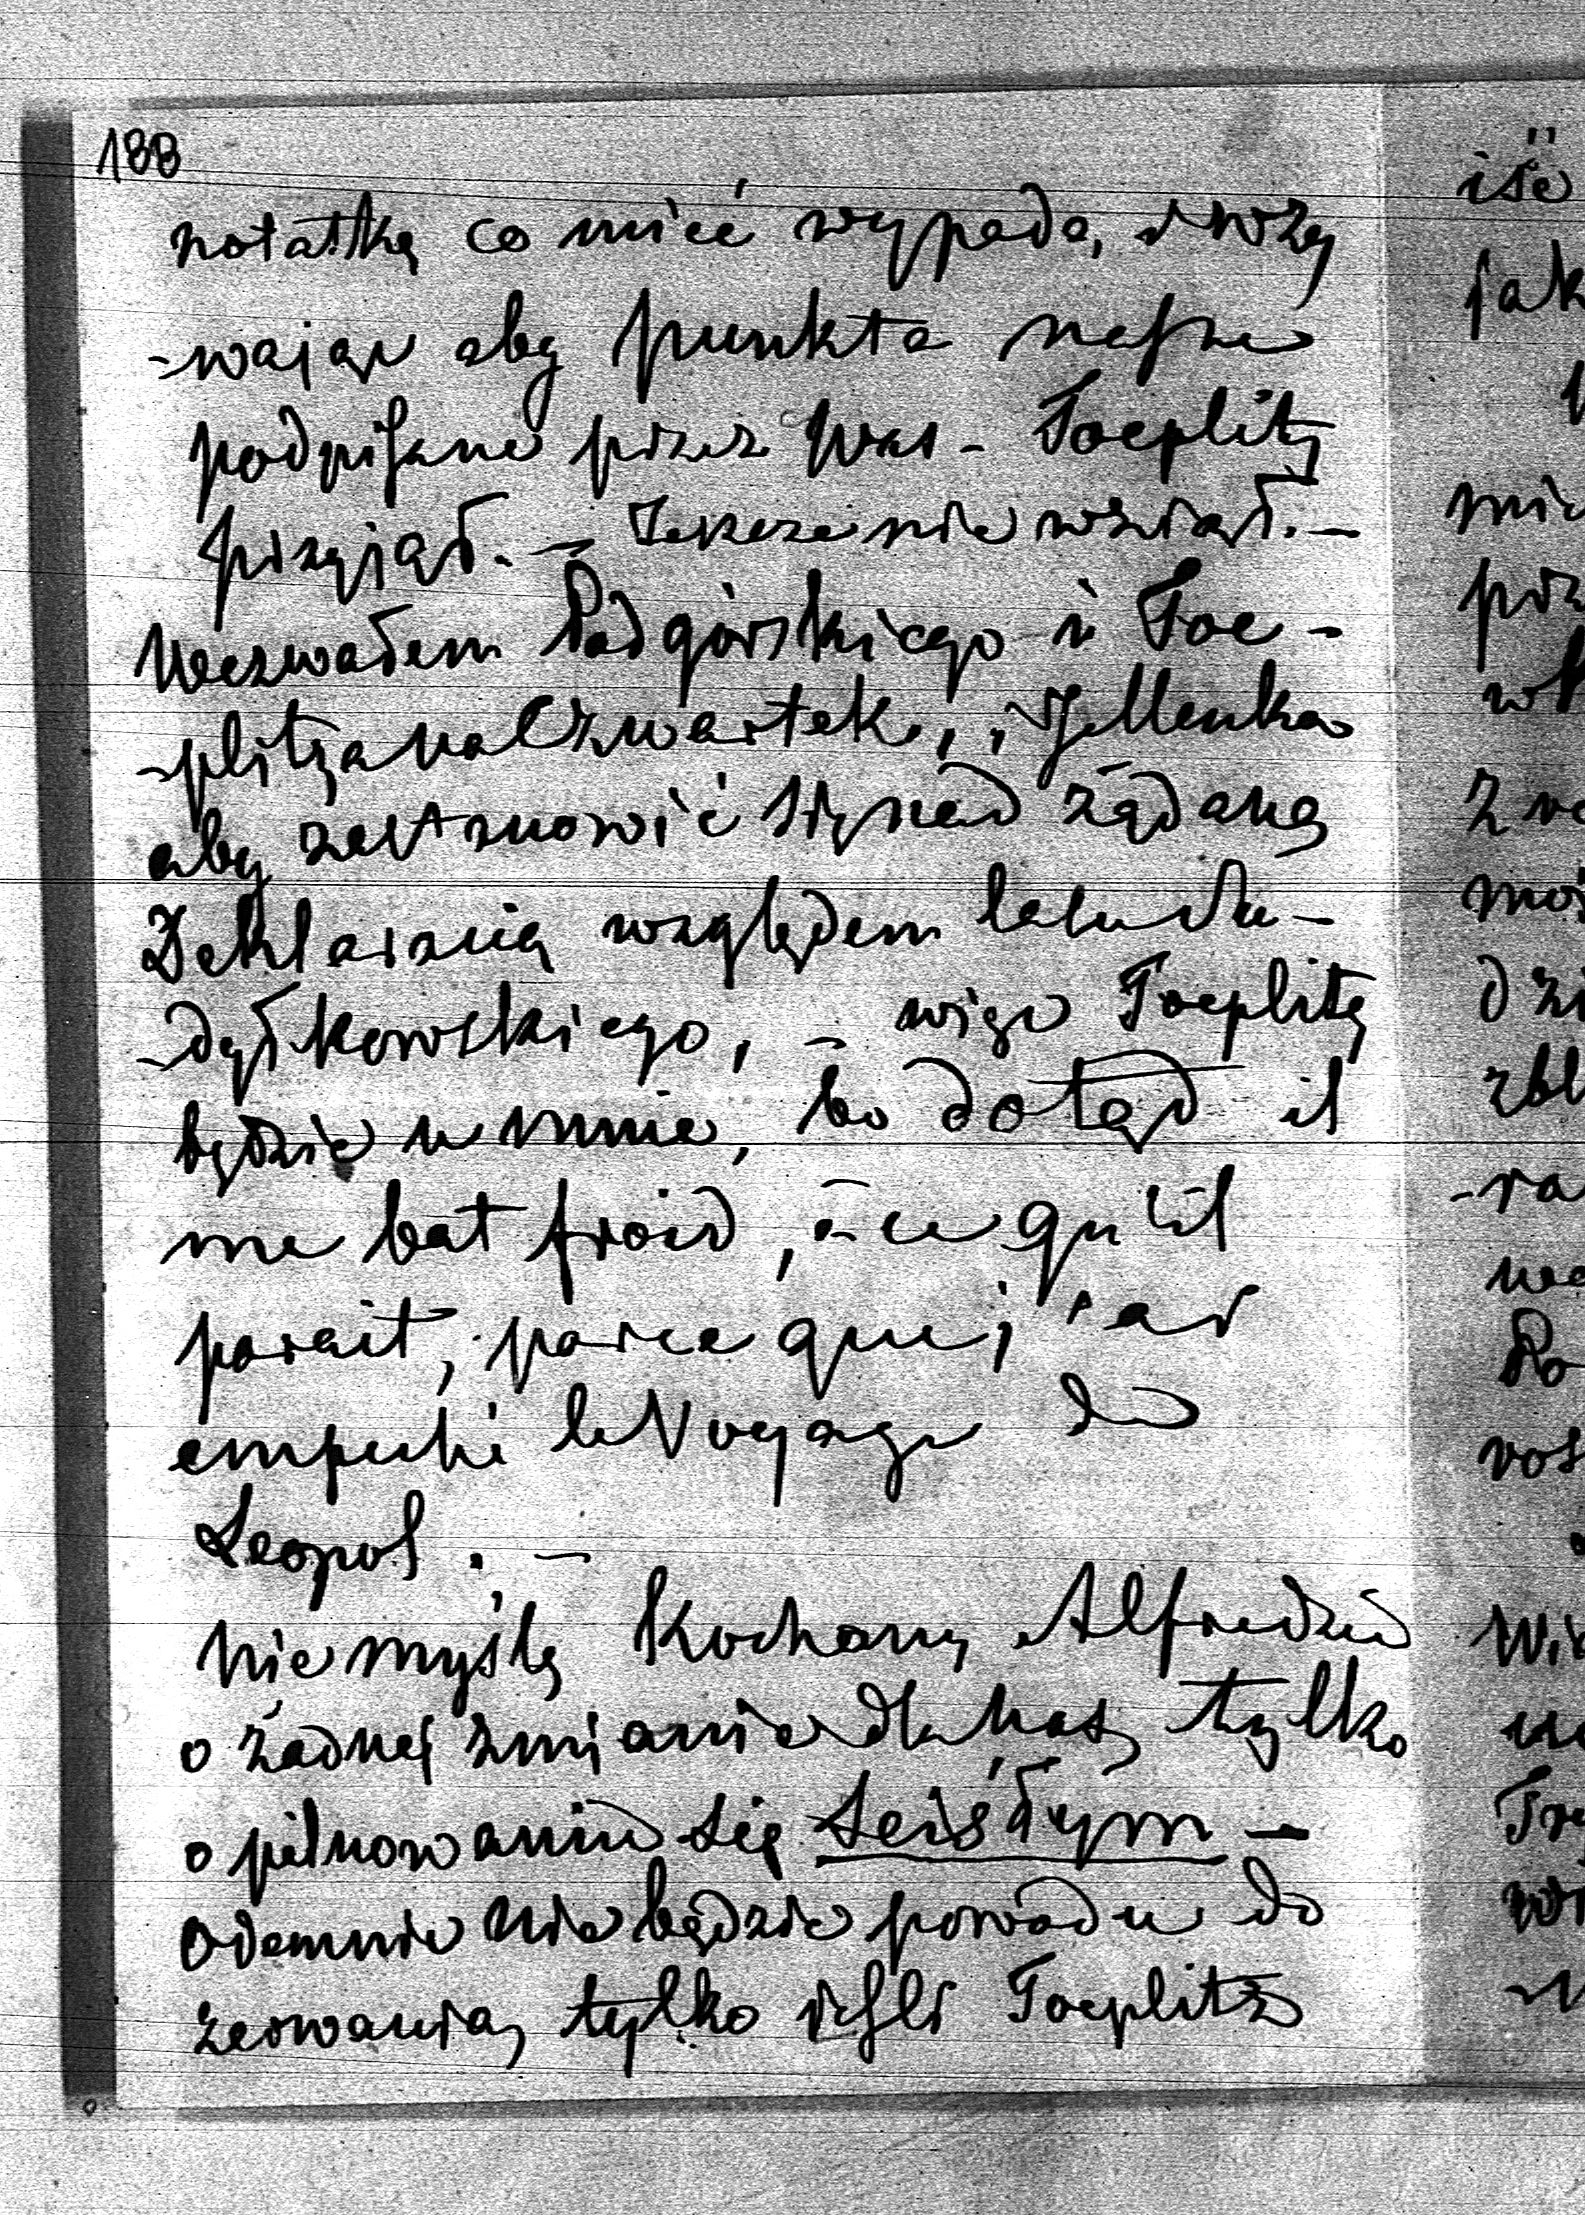 188
notatkę co mieć wypada, wzy
-wając aby punkta nasze
podpisane przez Was - Toeplitz
przyjął. - Jeszcze nie wziął. -
Wezwałem Podgórskiego i Toe-
-plitza na Czwartek, i Jellenka
aby zastanowić się nad żądaną
Deklaracją względem
-dyłkowskiego, - więc Toeplitz
będzie u mnie, bo dotąd il
me bat froid, à ce qu'il
parait, parce que j'ai
empeché le Voyage de
Leopol. -
Nie myślę Kochany Alfredzie
o żadnej zmianie dla nas, tylko
o pilnowaniu się ścisłym -
odemnie nie będzie powodu do
zerwania, tylko jeśli Toeplitz
iśe
jak
mi
prz
moż
dzi
zbl
-ra
Po